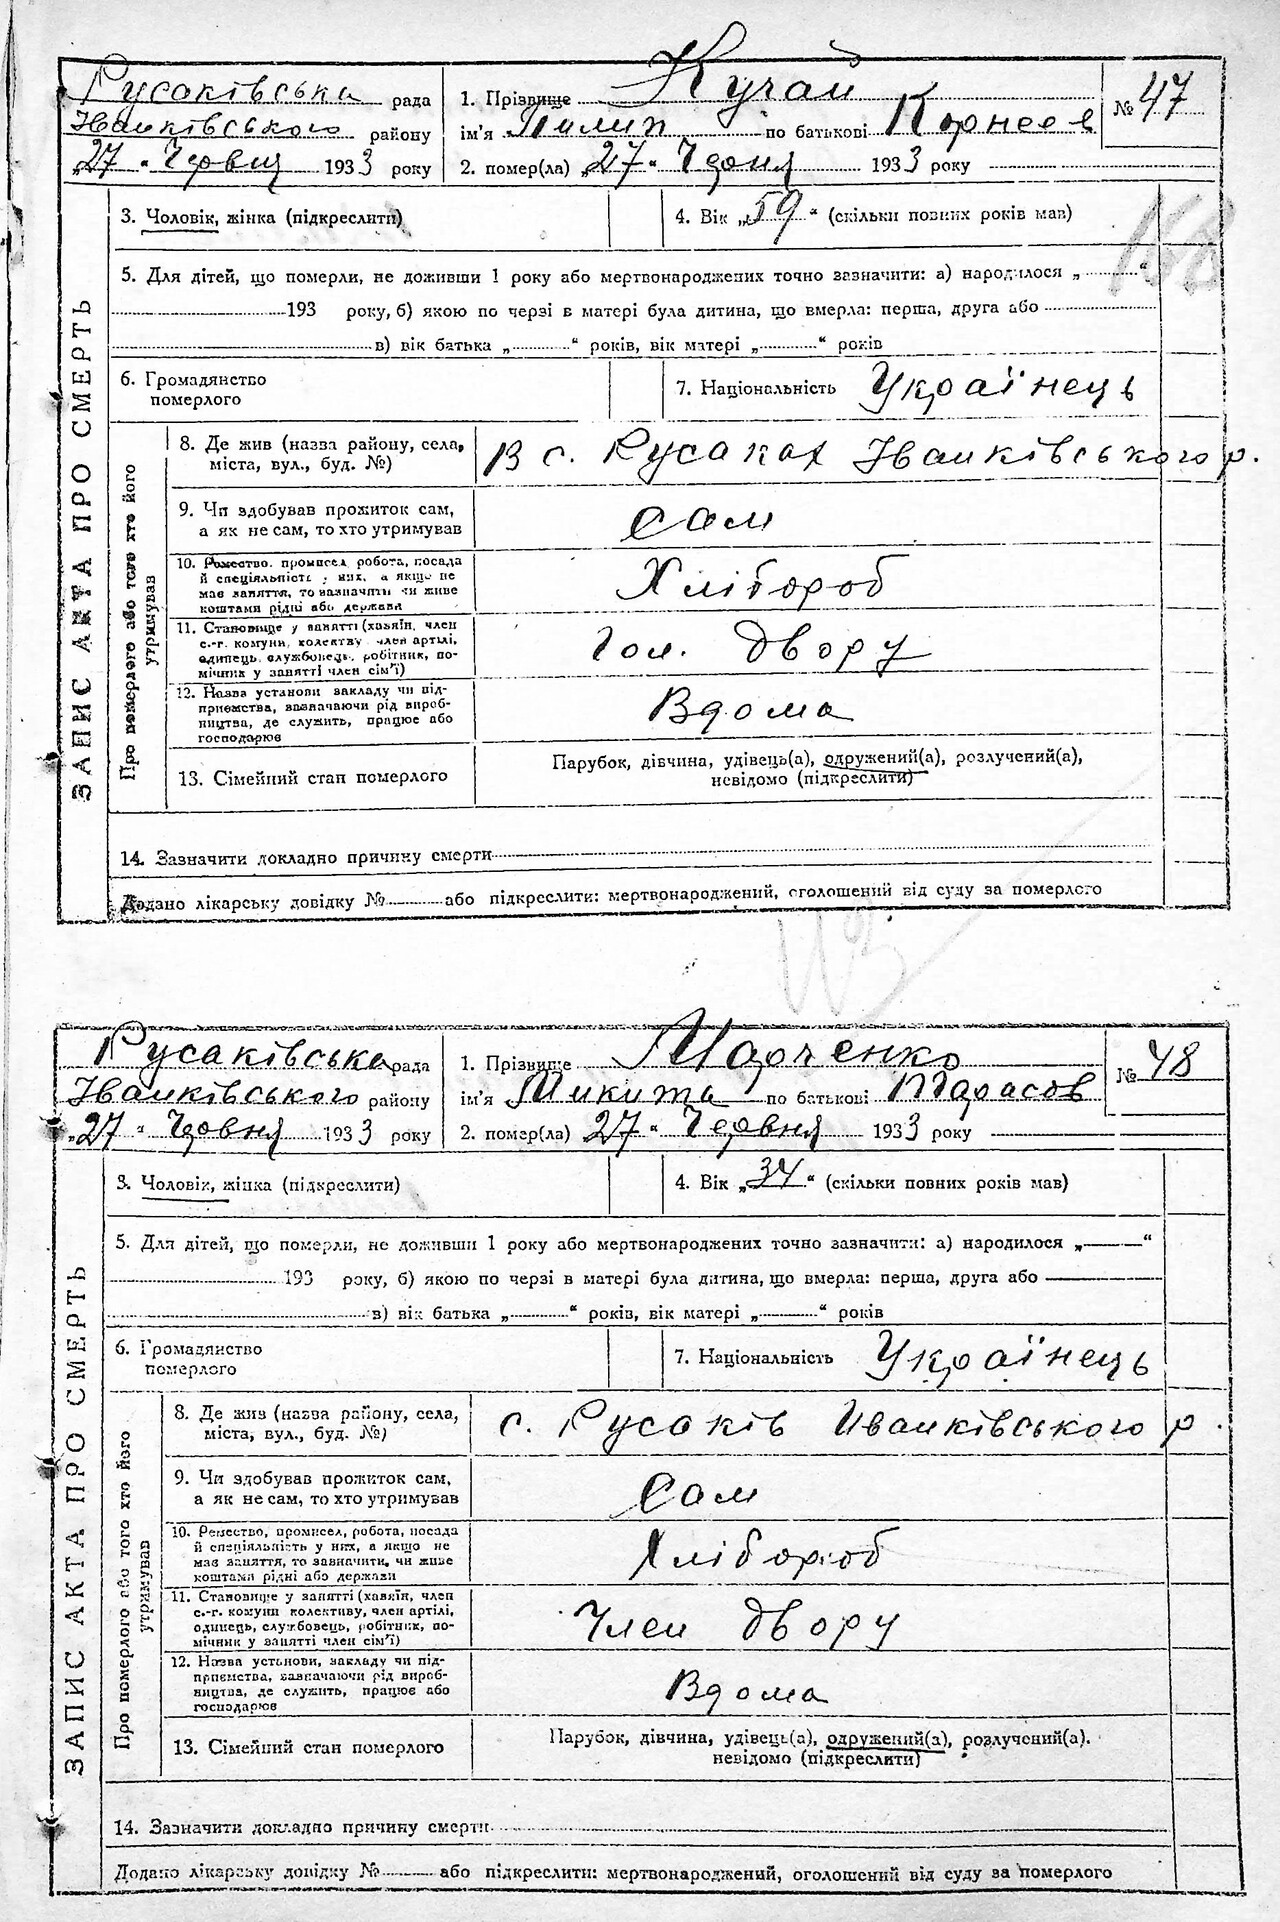 Русаківська рада
Іванківського району
„27“ Червня 1933 року
1. Прізвище Кучай
ім'я Пилип по батькові Корнеев
2. помер(ла) „27“ Червня 1933 року
№ 47
3. Чоловік, жінка (підкреслити)
4. Вік „59“ (скільки повних років мав)
5. Для дітей, що померли, не доживши 1 року або мертвонароджених точно зазначити: а) народилося „ “
193 року, б) якою по черзі в матері була дитина, що вмерла: перша, друга або
в) вік батька „ “ років, вік матері „ “ років
6. Громадянство
померлого
7. Національність Українець
ЗАПИС АКТА ПРО СМЕРТЬ
Про померлого або того хто його
утримував
8. Де жив (назва району, села,
міста, вул., буд. №)
В с. Русаках Іванківського р.
9. Чи здобував прожиток сам,
а як не сам, то хто утримував
сам
10. Ремество, промисел, робота, посада
й спеціяльність у них, а якщо не
має заняття, то зазначити чи живе
коштами рідні або держави
Хлібороб
11. Становище у занятті (хазяїн, член
с.-г. комуни, колективу, член артілі,
одинець, службовець, робітник, по-
мічник у занятті член сім'ї)
Гол. двору
12. Назва установи закладу чи під-
приємства, зазначаючи рід вироб-
ництва, де служить, працює або
господарює
Вдома
13. Сімейний стан померлого
Парубок, дівчина, удівець(а), одружений(а), розлучений(а),
невідомо (підкреслити)
14. Зазначити докладно причину смерти
Додано лікарську довідку № або підкреслити: мертвонароджений, оголошений від суду за померлого
Русаківська рада
Іванківського району
„27“ Червня 1933 року
1. Прізвище Марченко
ім'я Микита по батькові Тарасов
2. помер(ла) „27“ Червня 1933 року
№ 48
3. Чоловік, жінка (підкреслити)
4. Вік „34“ (скільки повних років мав)
5. Для дітей, що померли, не доживши 1 року або мертвонароджених точно зазначити: а) народилося „ “
193 року, б) якою по черзі в матері була дитина, що вмерла: перша, друга або
в) вік батька „ “ років, вік матері „ “ років
6. Громадянство
померлого
7. Національність Українець
ЗАПИС АКТА ПРО СМЕРТЬ
Про померлого або того хто його
утримував
8. Де жив (назва району, села,
міста, вул., буд. №)
с. Русаків Иванківського р.
9. Чи здобував прожиток сам,
а як не сам, то хто утримував
Сам
10. Ремество, промисел, робота, посада
й спеціяльність у них, а якщо не
має заняття, то зазначити, чи живе
коштами рідні або держави
Хлібороб
11. Становище у занятті (хазяїн, член
с.-г. комуни колективу, член артілі,
одинець, службовець, робітник, по-
мічник у занятті член сім'ї)
Член двору
12. Назва установи, закладу чи під-
приємства, зазначаючи рід вироб-
ництва, де служить, працює або
господарює
Вдома
13. Сімейний стан померлого
Парубок, дівчина, удівець(а), одружений(а), розлучений(а).
невідомо (підкреслити)
14. Зазначити докладно причину смерти
Додано лікарську довідку № або підкреслити: мертвонароджений, оголошений від суду за померлого